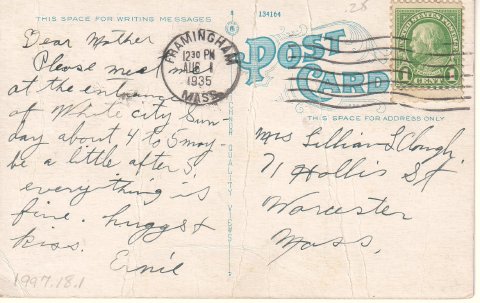 THIS SPACE FOR WRITING MESSAGES
134164
28
POST
CARD
THIS SPACE FOR ADDRESS ONLY
FRAMINGHAM
1230 PM
AUG
1935
MASS.
UNITED STATES POSTAGE
1 CENT 1
Dear Mother
Please meet me
at the entrance
of White city Sun-
day about 4 to 5 may-
be a little after 5.
everything is
fine. huggs &
kiss.
Ernie
1997.18.1
QUALITY VIEWS
Mrs Lillian L Clough.
71 Hollis St
Worcester
Mass.